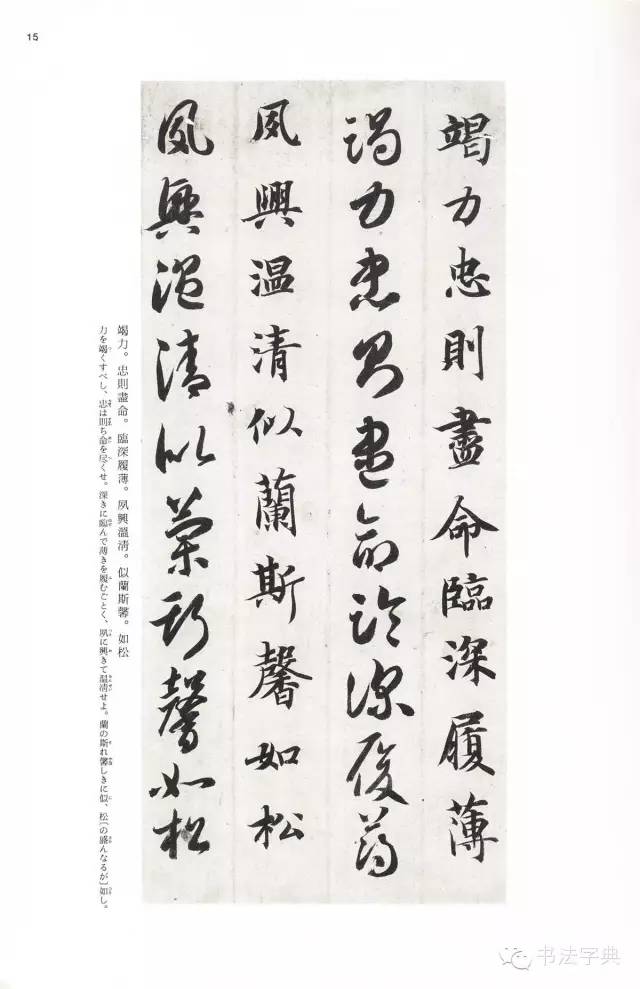 15
竭力忠則盡命臨深履薄
竭力忠則盡命臨深履薄
夙興温清似蘭斯馨如松
夙興温清似蘭斯馨如松
竭力。忠則盡命。臨深履薄。夙興溫凊。似蘭斯馨。如松
力を竭くすべし、忠は則ち命を尽くせ。深きに臨んで薄きを履むごとく、夙に興きて温凊せよ。蘭の斯れ馨しきに似、松〔の盛んなるが〕如し。
书法字典